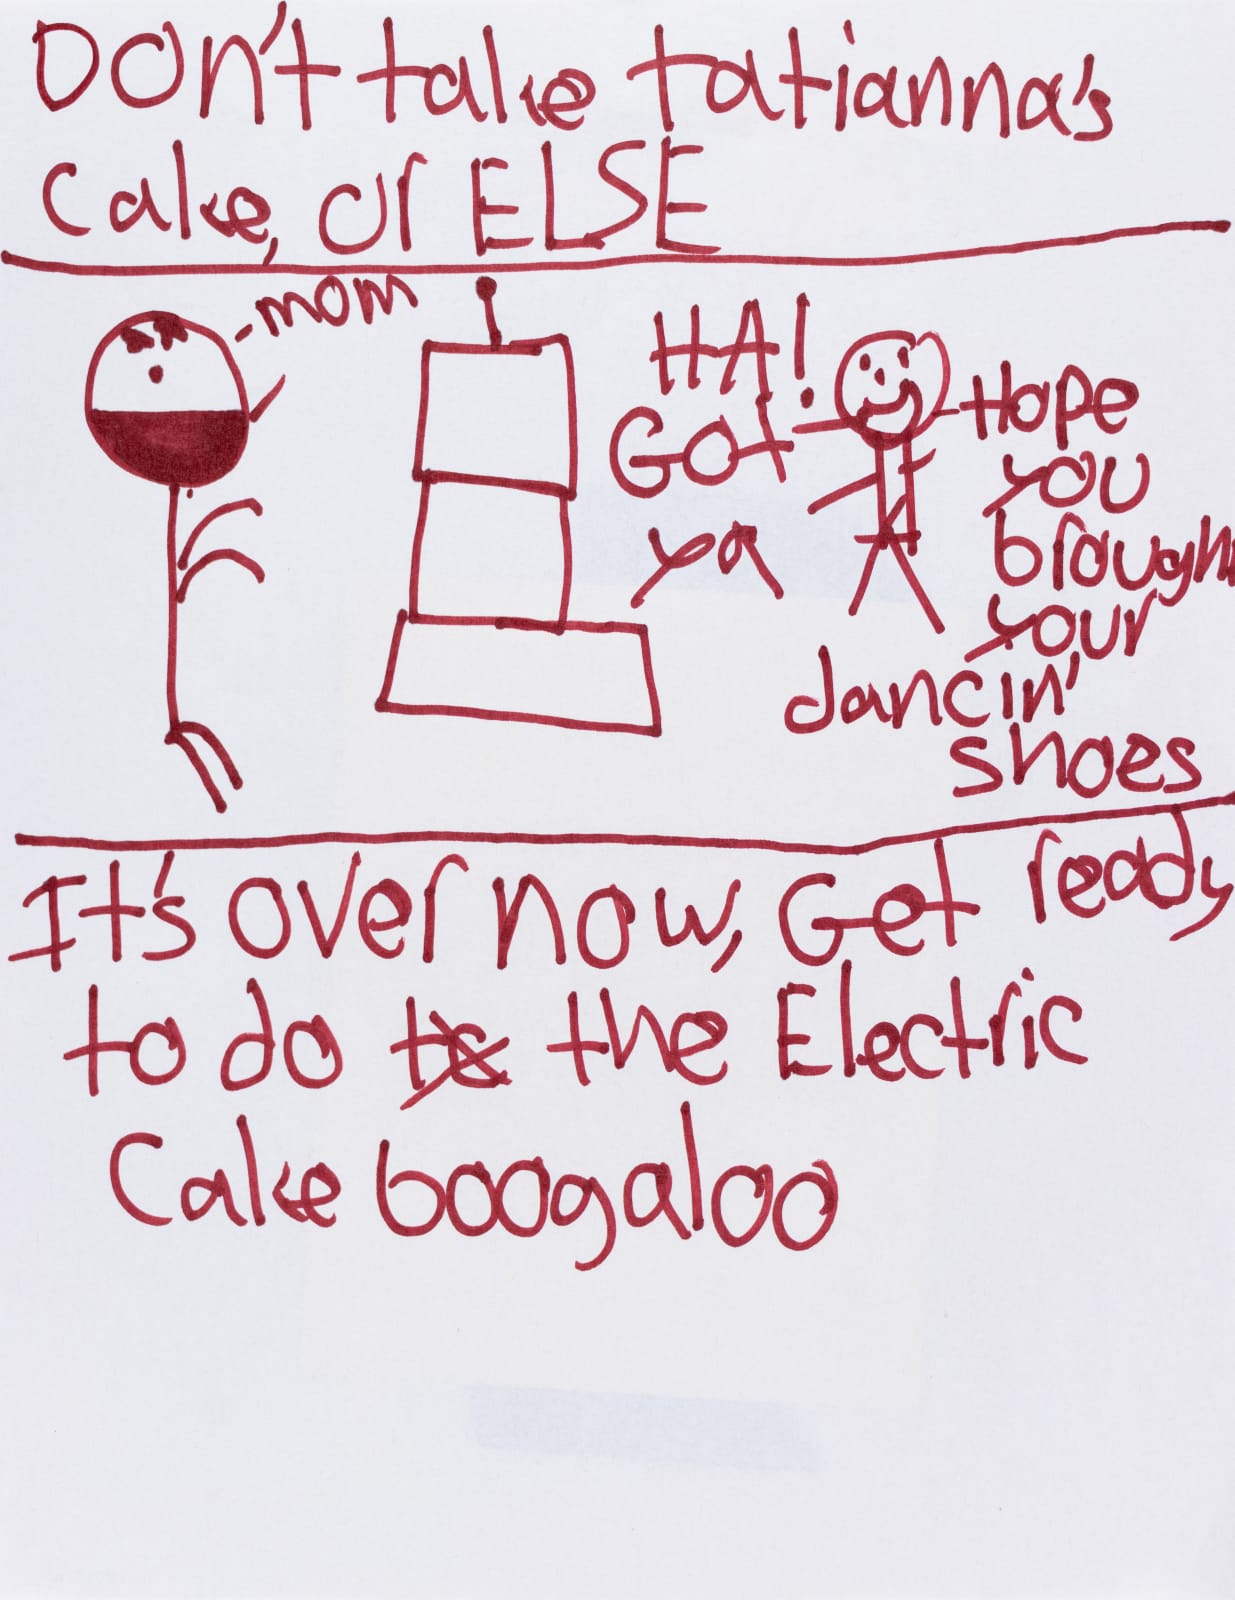 Don't take tatianna's
Cake, or ELSE
mom
HA!
Got
ya
Hope
you
brought
your
dancin'
shoes
It's over now, Get ready
to do the Electric
Cake boogaloo